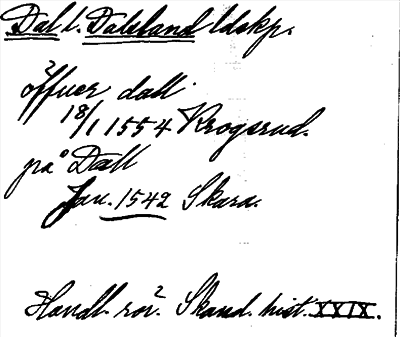 Dal l. Dalsland ldskp.
öffuer dall
18/1 1554 Krogsrud.
på Dall
Jan. 1542 Skara.
Handl. rör. Skand. hist. XXIX.